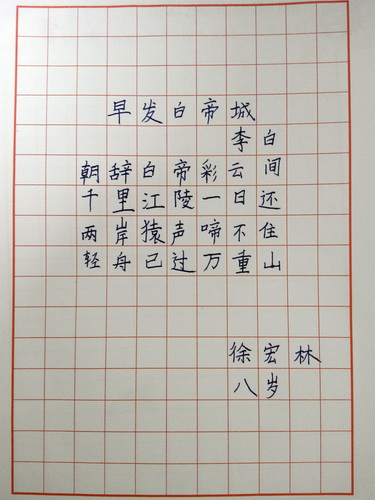 早发白帝城
李白
朝辞白帝彩云间
千里江陵一日还
两岸猿声啼不住
轻舟已过万重山
徐宏林
八岁